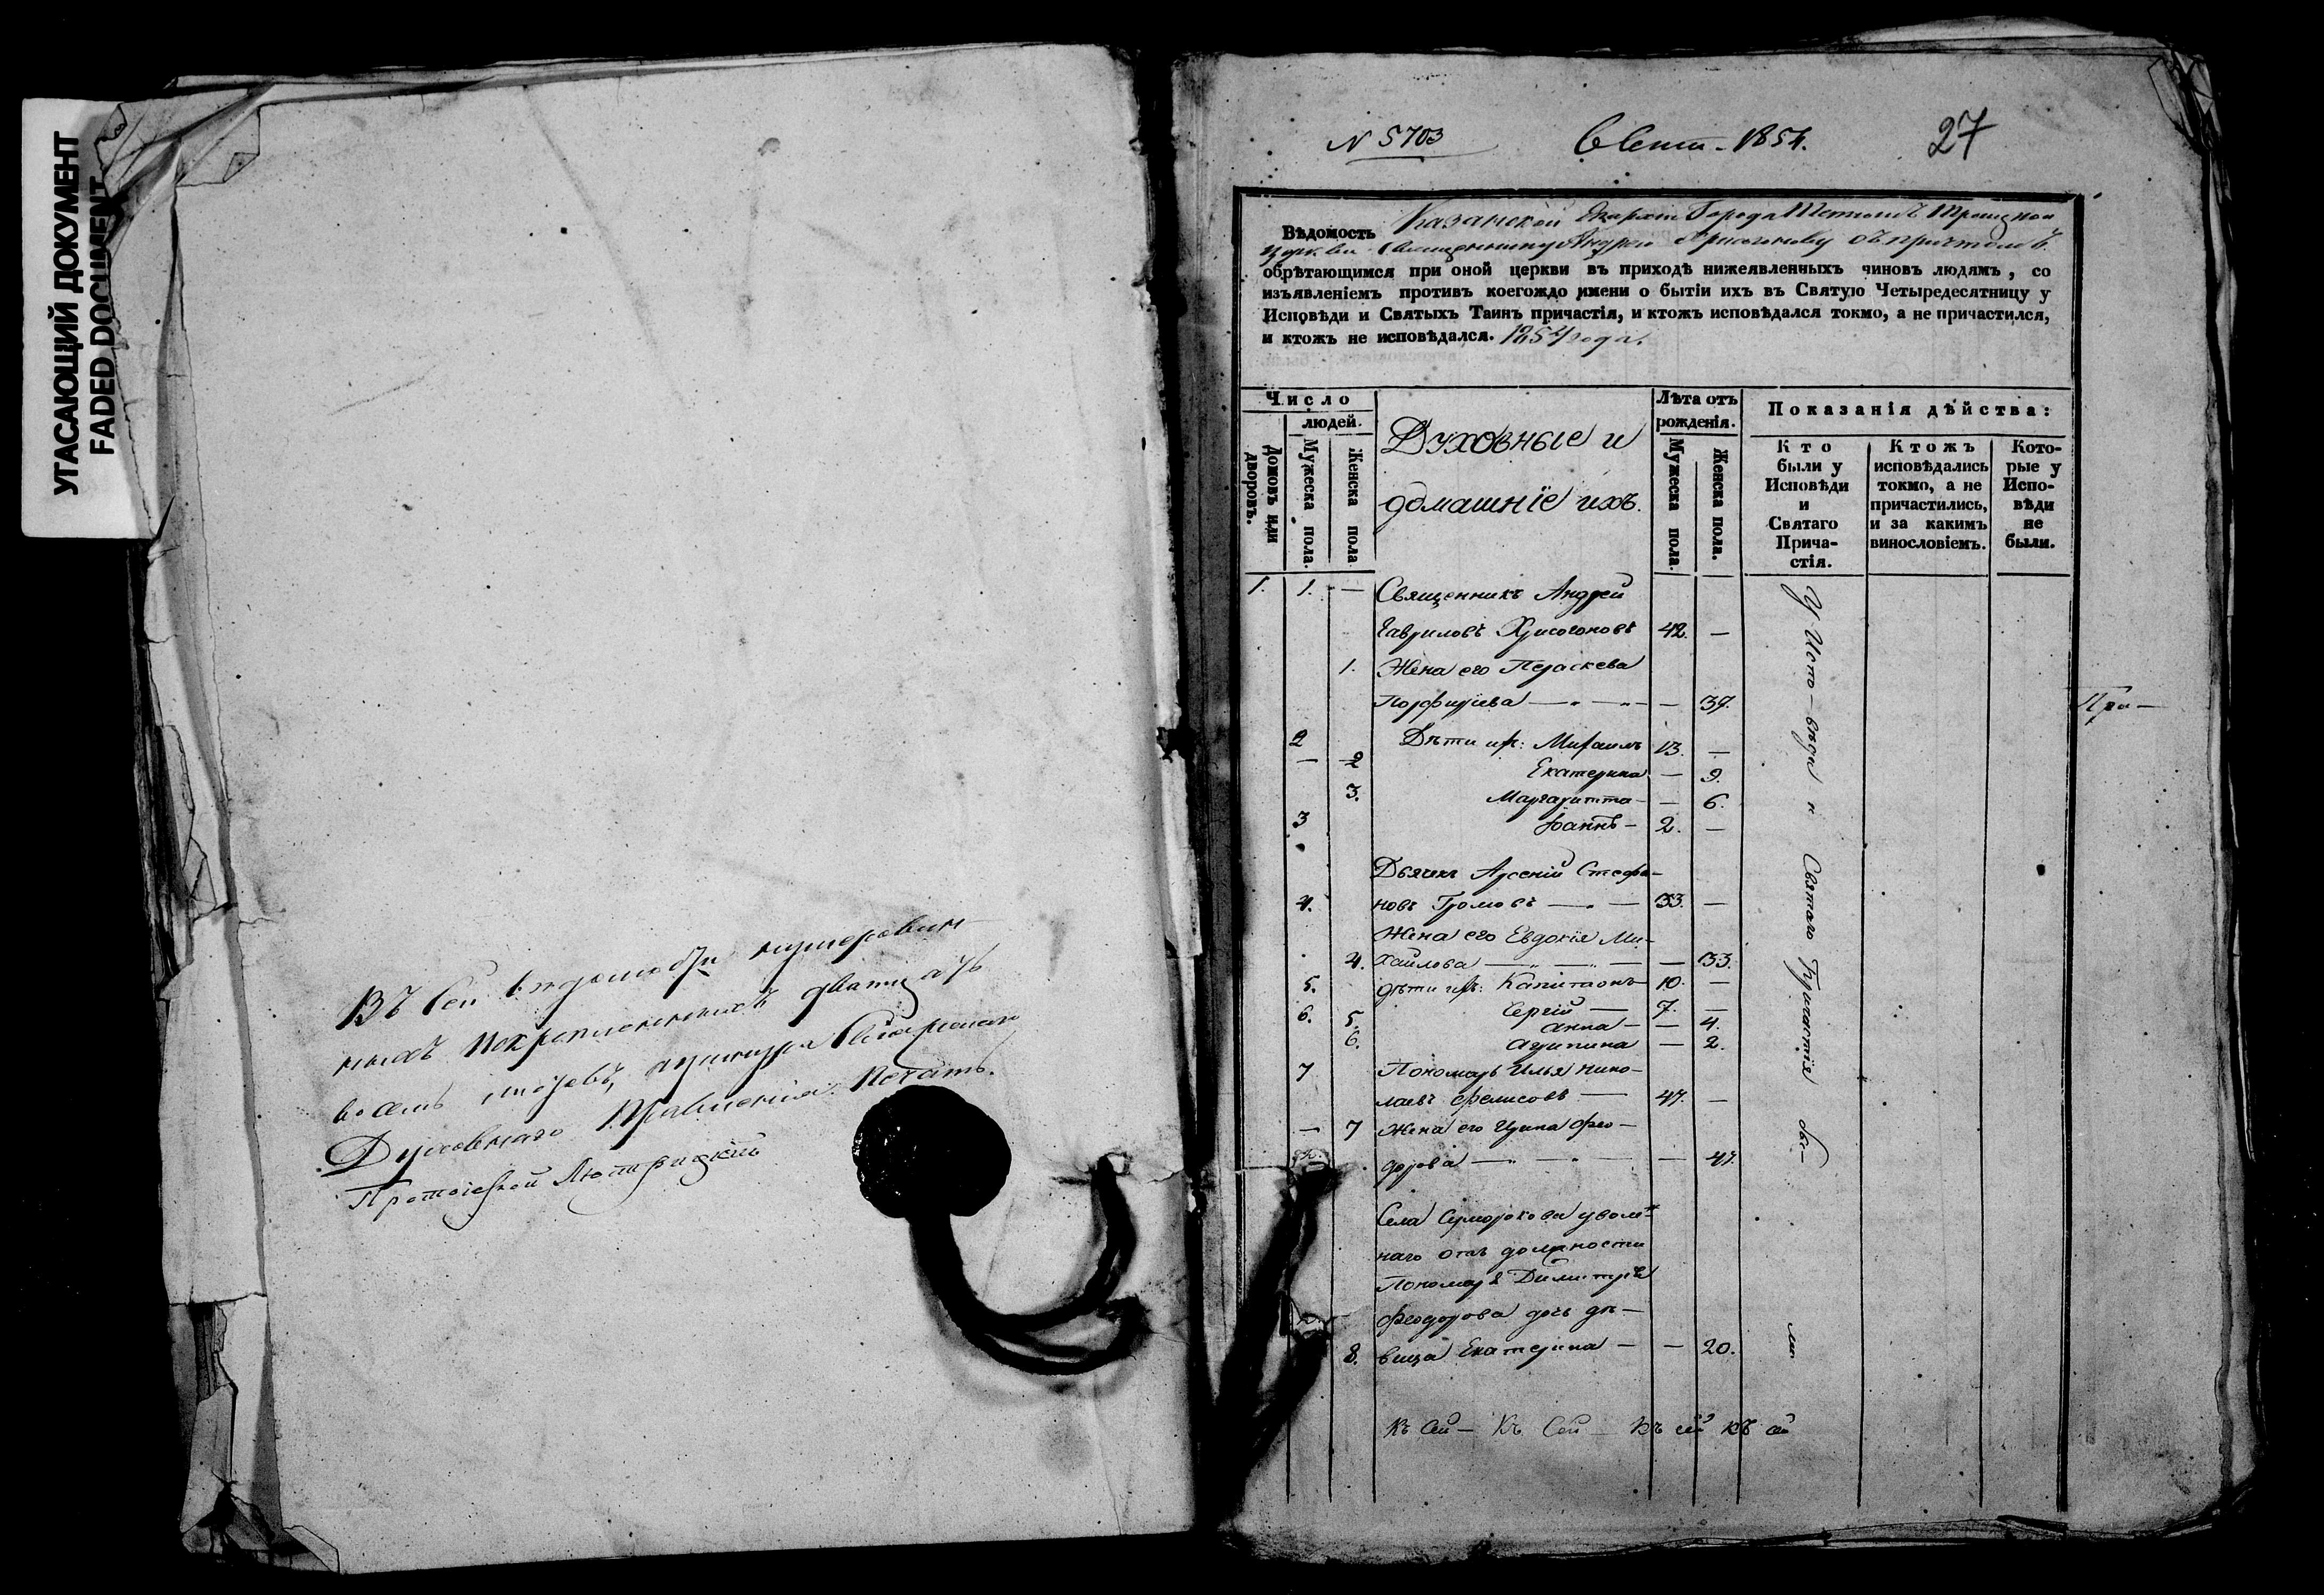 УГАСАЮЩИЙ ДОКУМЕНТ
FADED DOCUMENT
Въ сей
двадцать
восемь
Духовнаго Правленія Печать.
Протоіерей
N 5703
Сент - 1854.
27
Вѣдомость Казанской Епархіи Города Тетюшъ Троицкой
Церкви Священнику Андрею съ причтомъ
обрѣтающимся при оной церкви въ приходѣ нижеявленныхъ чиновъ людямъ, со
изъявленіемъ противъ коегождо имени о бытіи ихъ въ Святую Четыредесятницу у
Исповѣди и Святыхъ Таинъ причастія, и ктожъ исповѣдался токмо, а не причастился,
и ктожъ не исповѣдался. 1854 года.
Число
людей.
Домовъ или дворовъ.
Мужеска пола.
Женска пола
Духовные и
домашніе ихъ.
Лѣта отъ
рожденія.
Мужеска пола.
Женска пола.
Показанія дѣйства:
Кто
были у
Исповѣди
и
Святаго
Прича-
стія.
Ктожъ
исповѣдались
токмо, а не
причастились,
и за какимъ
винословіемъ.
Кото-
рые у
Испо-
вѣди
не
были.
1. 1. — Священникъ Андрей
Гавриловъ Хрисогоновъ 42. —
1. Жена его Параскева
Порфирьева — 39.
2 Дѣти ихъ: Михаилъ 13. —
— 2 Екатерина — 9.
3. Маргаритта — 6.
3 Іоаннъ — 2. —
Дьячекъ Арсеній Стефа-
4. новъ Громовъ — 33. —
Жена его Евдокія Ми-
4. хайлова — 33.
5. дѣти ихъ: Капитонъ 10. —
6. Сергій — 7. —
5. Анна — 4.
6. Агрипина — 2.
7 Пономарь Илья Нико-
лаевъ 47. —
— 7 Жена его Ирина Фео-
дорова — 47.
Села
наго отъ должности
Пономаря Димитрія
Феодорова дочь дѣ-
8. вица Екатерина — — 20.
У Испо-вѣди и Святаго Причастія бы-ли
При-
Къ сей - Къ Сей - Къ сей Къ сей